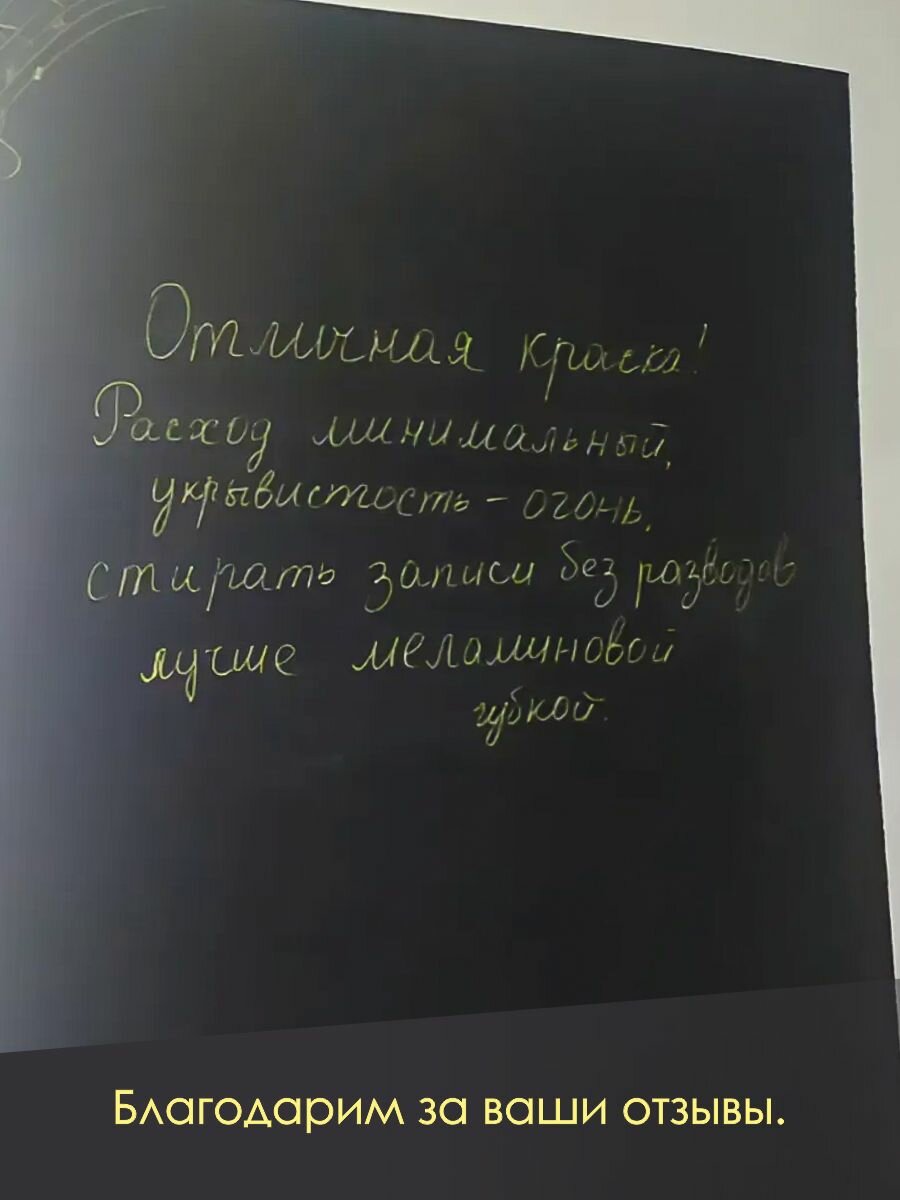 Отличная краска!
Расход минимальный,
укрывистость - огонь,
стирать записи без разводов
лучше меламиновой
губкой.
Благодарим за ваши отзывы.